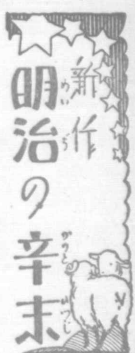 新作
明治の辛末